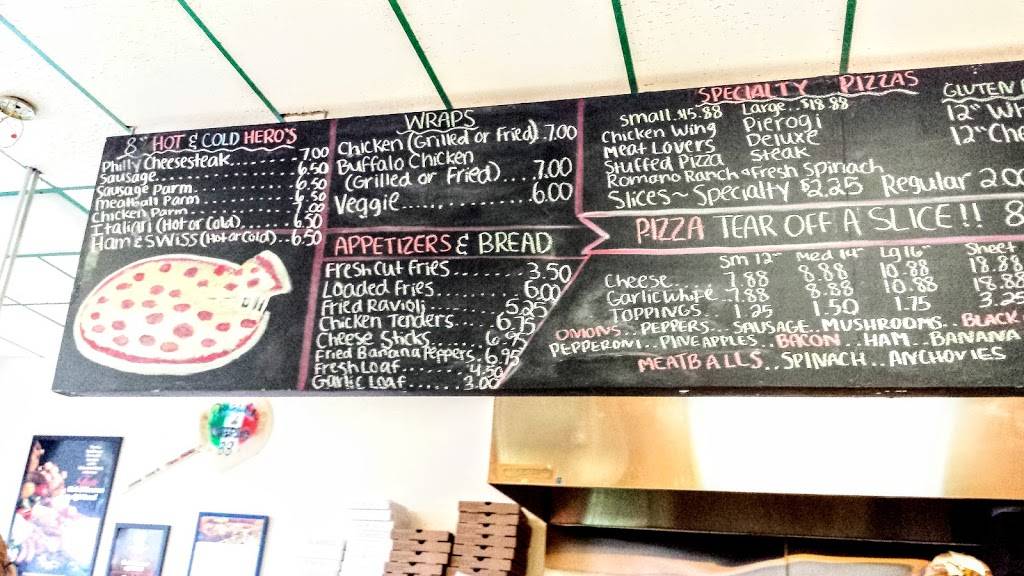 8" HOT & COLD HERO'S
Philly Cheesesteak........ 7.00
Sausage.......... 6.50
Sausage Parm.......... 6.50
Meatball Parm.......... 6.50
Chicken Parm.......... 7.00
Italian (Hot or Cold)... 6.50
Ham & Swiss (Hot or Cold)... 6.50
WRAPS
Chicken (Grilled or Fried).. 7.00
Buffalo Chicken
(Grilled or Fried).... 7.00
Veggie............ 6.00
APPETIZERS & BREAD
Fresh Cut Fries....... 3.50
Loaded Fries......... 6.00
Fried Ravioli........ 5.25
Chicken Tenders.... 6.75
Cheese Sticks...... 6.95
Fried Banana Peppers.. 6.95
Fresh Loaf....... 4.50
Garlic Loaf...... 3.00
SPECIALTY PIZZAS
Small.. Large.. $18.88
Chicken Wing Pierogi
Meat Lovers Deluxe
Stuffed Pizza Steak
Romano Ranch & Fresh Spinach
Slices~ Specialty $2.25 Regular 2.00
GLUTEN
12" Wh
12" Che
PIZZA TEAR OFF A SLICE!! 8
Sm 12" Med 14" Lg 16" Sheet
Cheese... 7.88 8.88 10.88 18.88
Garlic White.. 7.88 8.88 10.88 18.88
TOPPINGS 1.25 1.50 1.75 3.25
ONIONS.. PEPPERS.. SAUSAGE.. MUSHROOMS.. BLACK
PEPPERONI... PINEAPPLES.. BACON.. HAM.. BANANA
MEATBALLS.. SPINACH.. ANCHOVIES